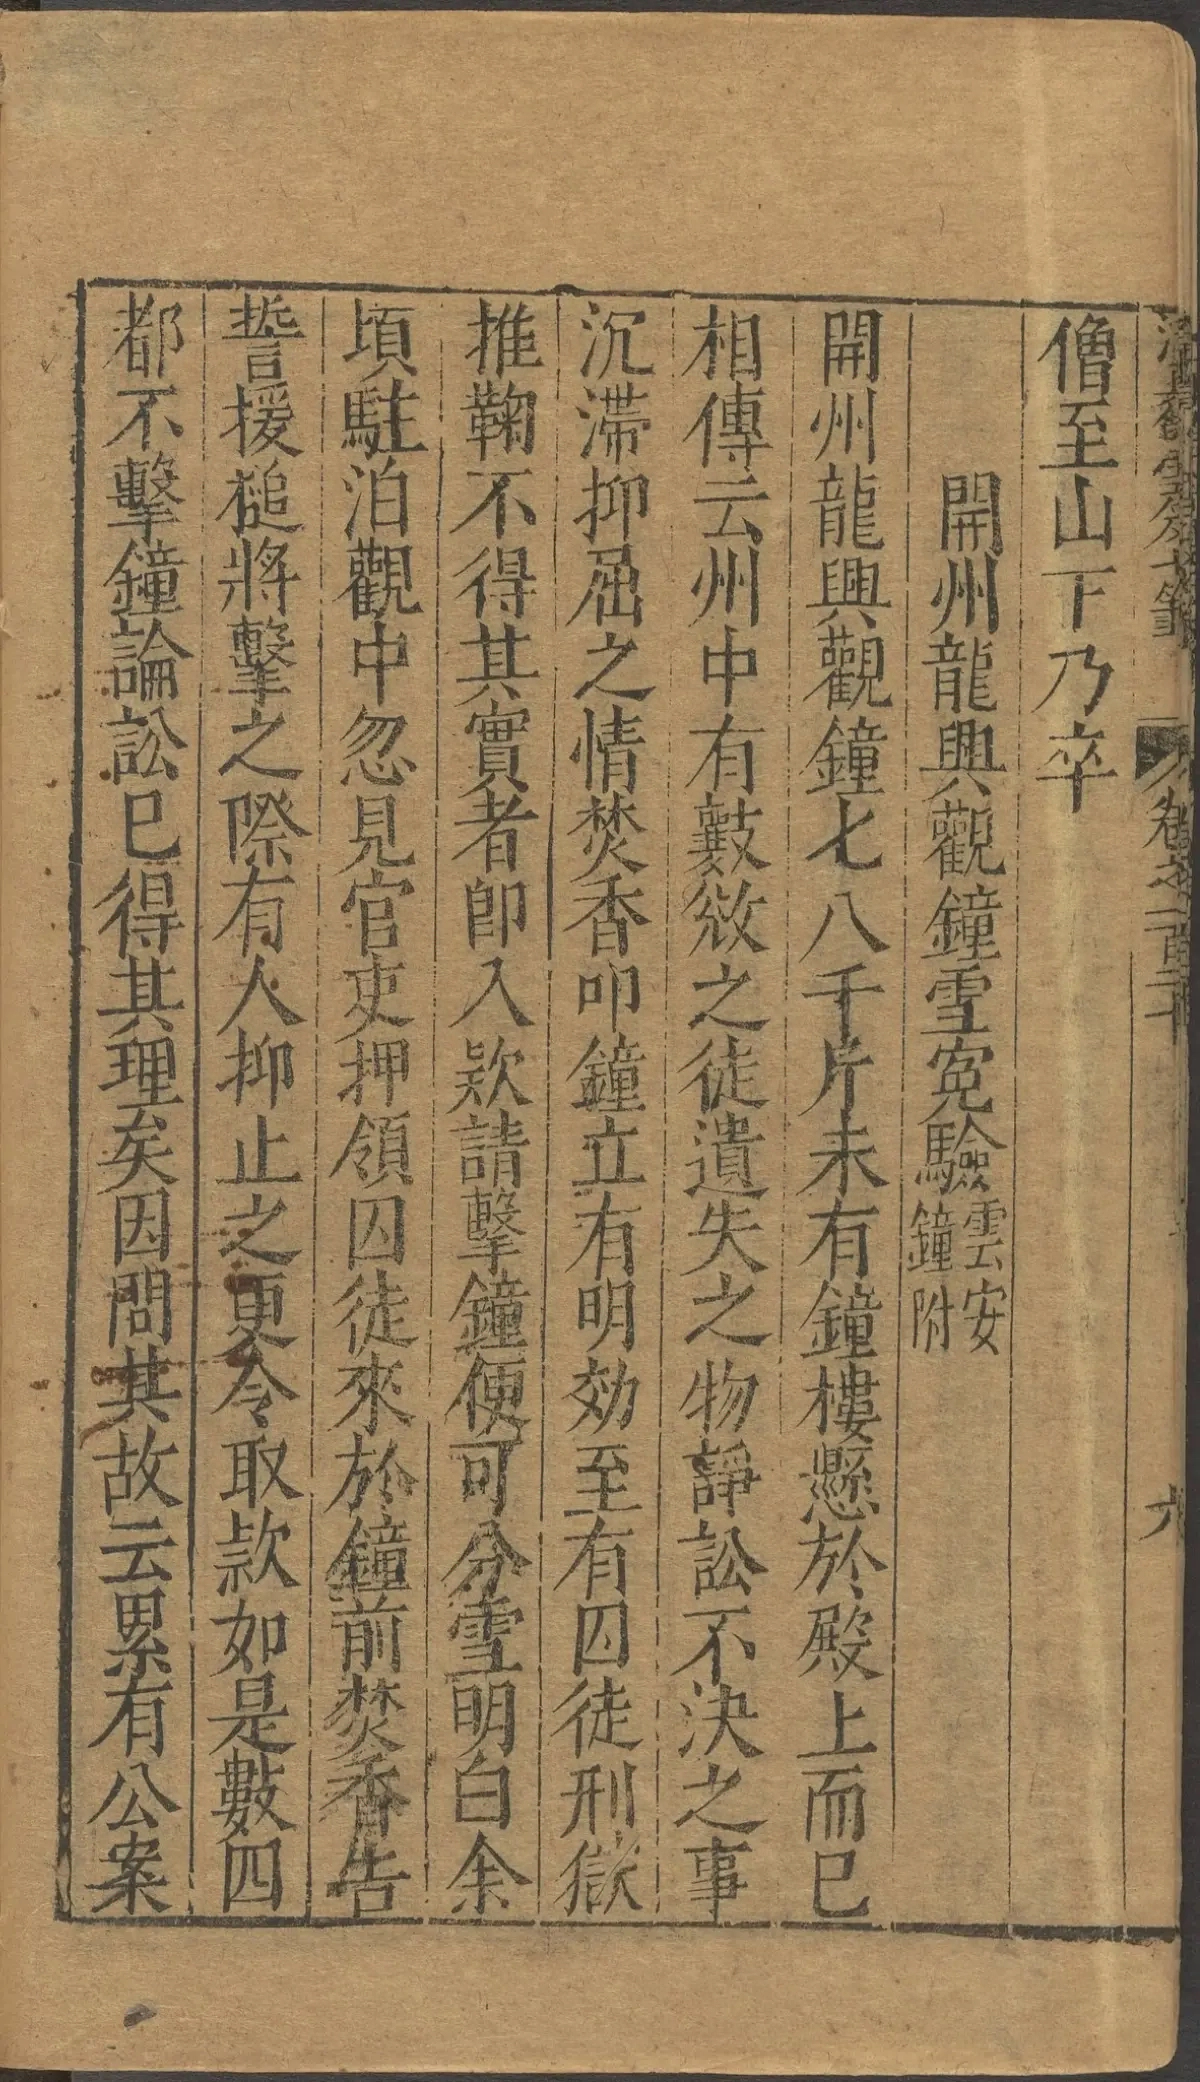 僧至山下乃卒
開州龍興觀鐘雪寃驗雲安鐘附
開州龍興觀鐘七八千斤未有鐘樓懸於殿上而已
相傳云州中有𣀮欻之徒遺失之物諍訟不決之事
沉滯抑屈之情焚香叩鐘立有明効至有囚徒刑獄
推鞠不得其實者即入欵請擊鐘便可分雪明白余
頃駐泊觀中忽見官吏押領囚徒來於鐘前焚香告
誓援搥將擊之際有人抑止之更令取款如是數四
都不擊鐘論訟已得其理矣因問其故云累有公案